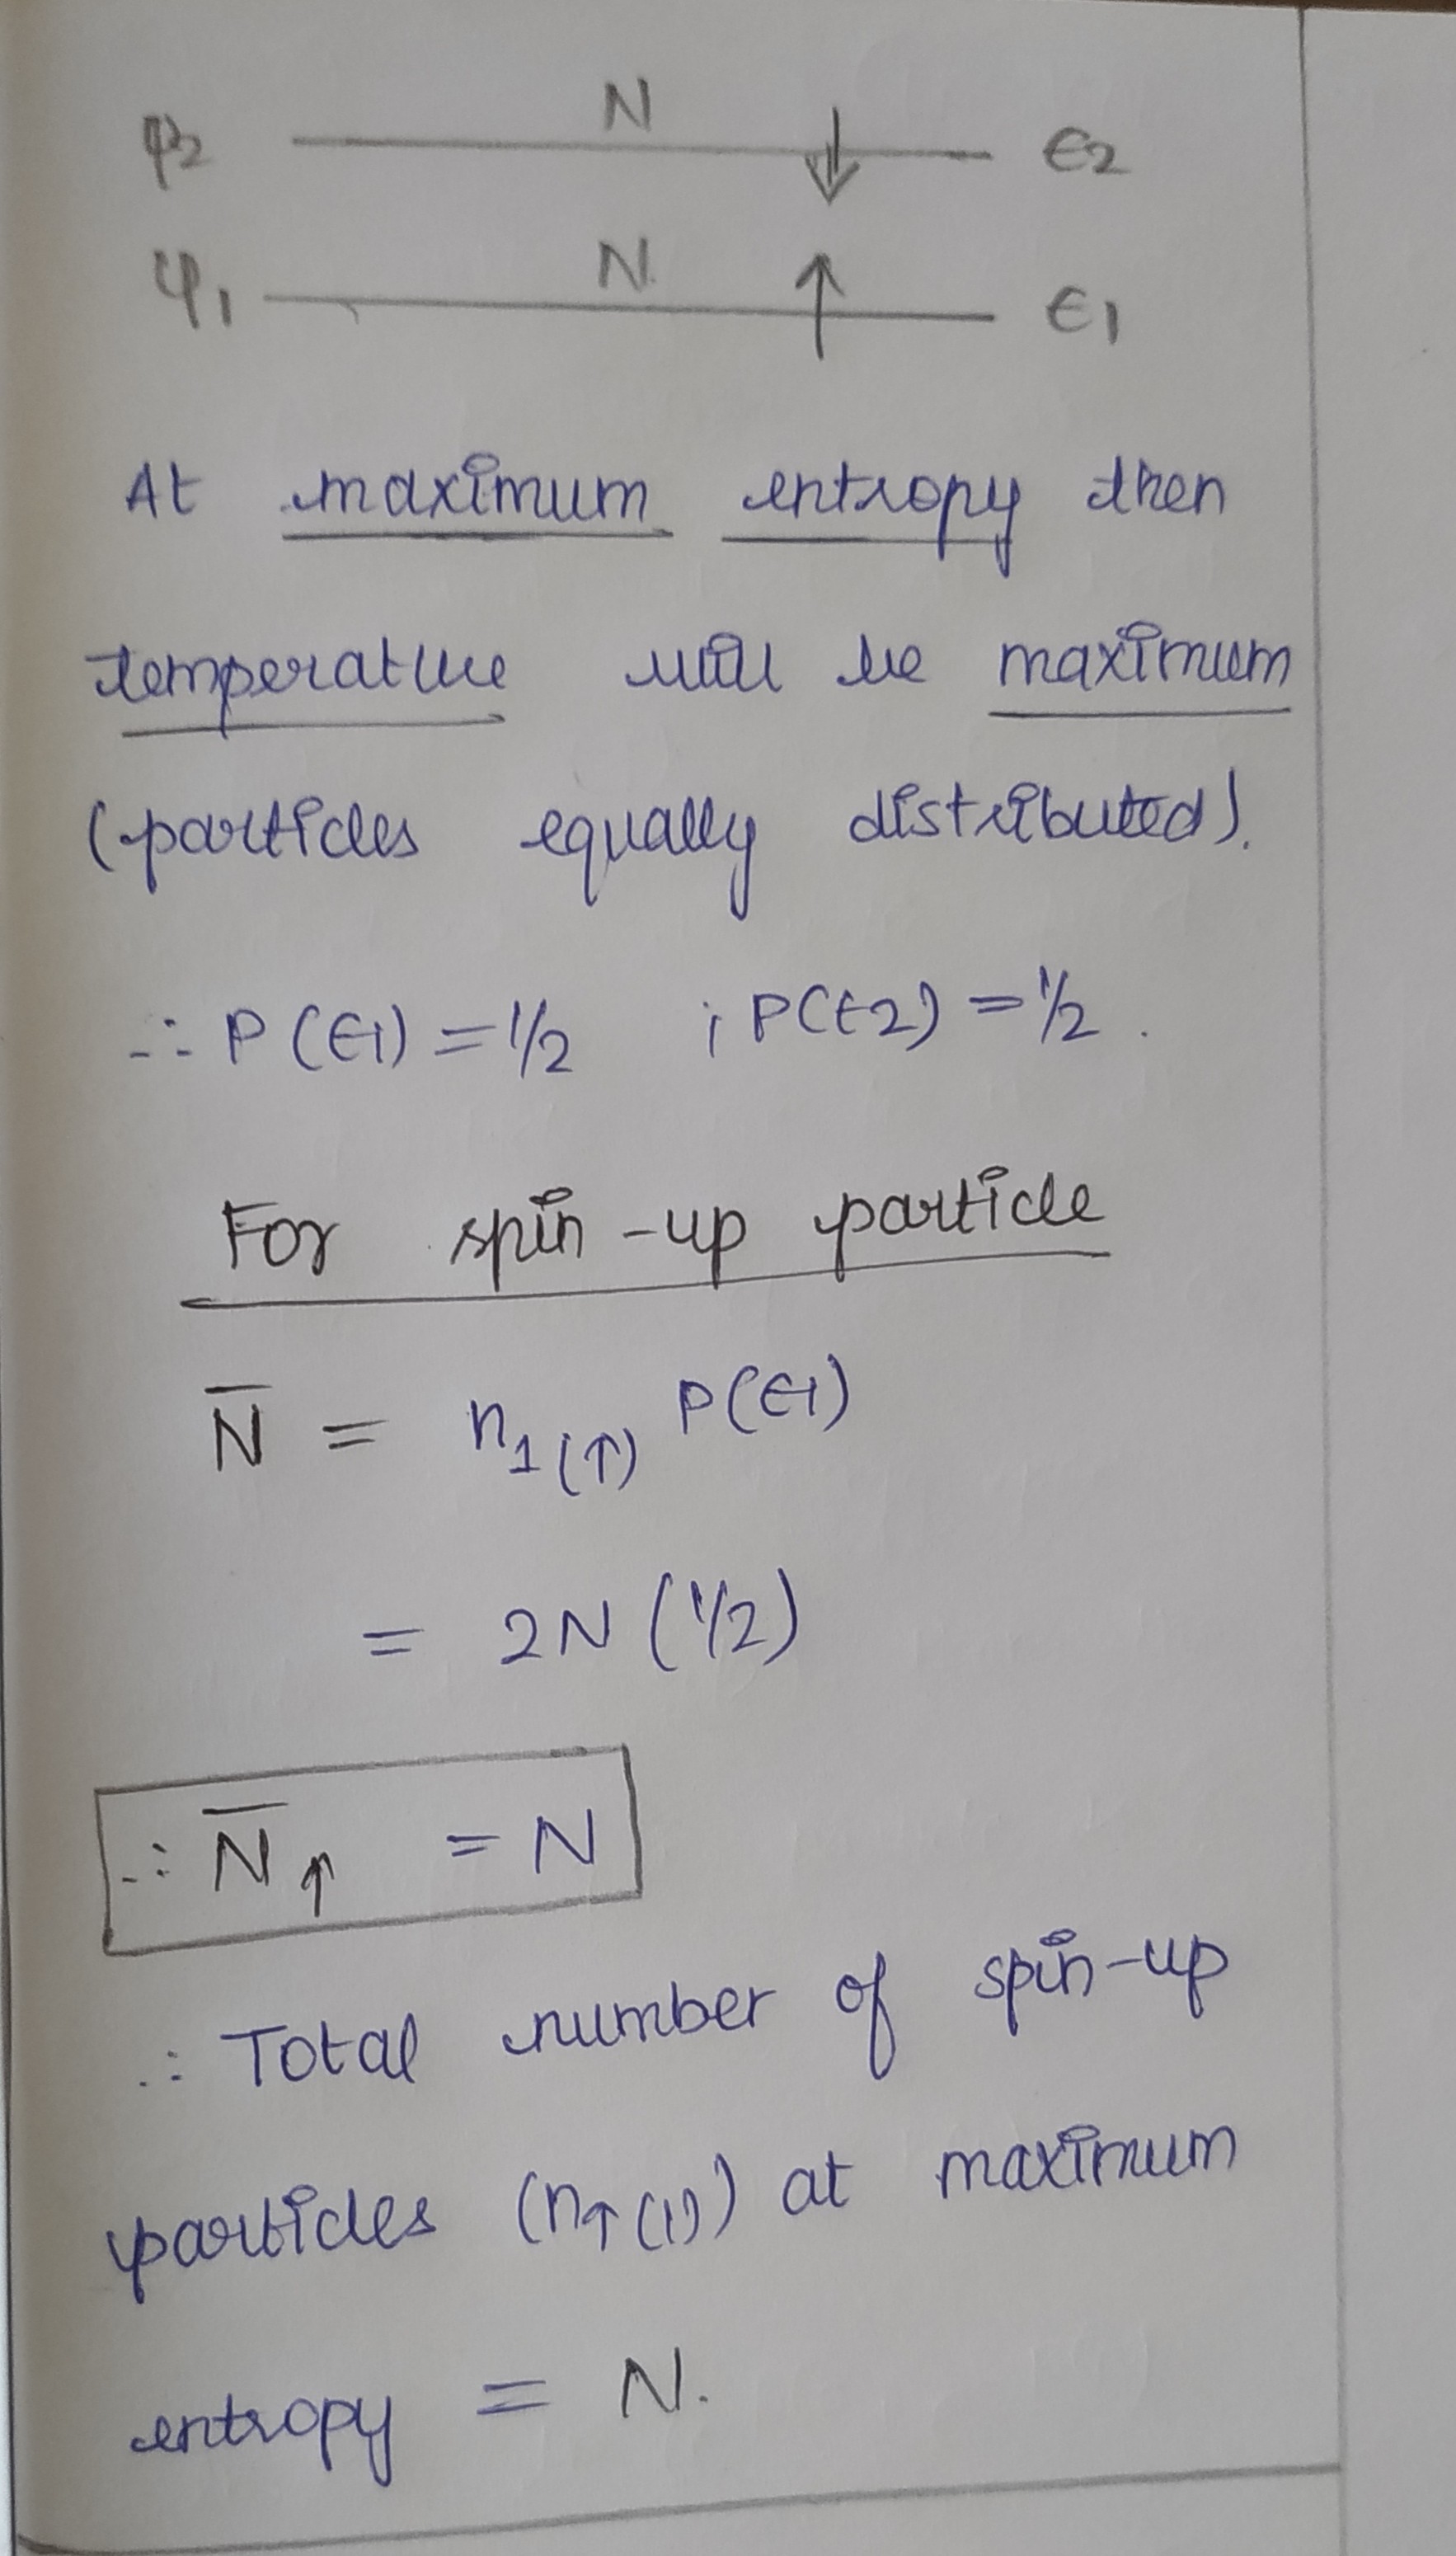 φ2 N ↓ ϵ2
φ1 N ↑ ϵ1
At maximum entropy then
temperature will be maximum
(particles equally distributed).
∴ P(ϵ1) = 1/2 ; P(ϵ2) = 1/2.
For spin-up particle
N̄ = n1(↑) P(ϵ1)
= 2N (1/2)
∴ N̄↑ = N
∴ Total number of spin-up
particles (n↑(1)) at maximum
entropy = N.